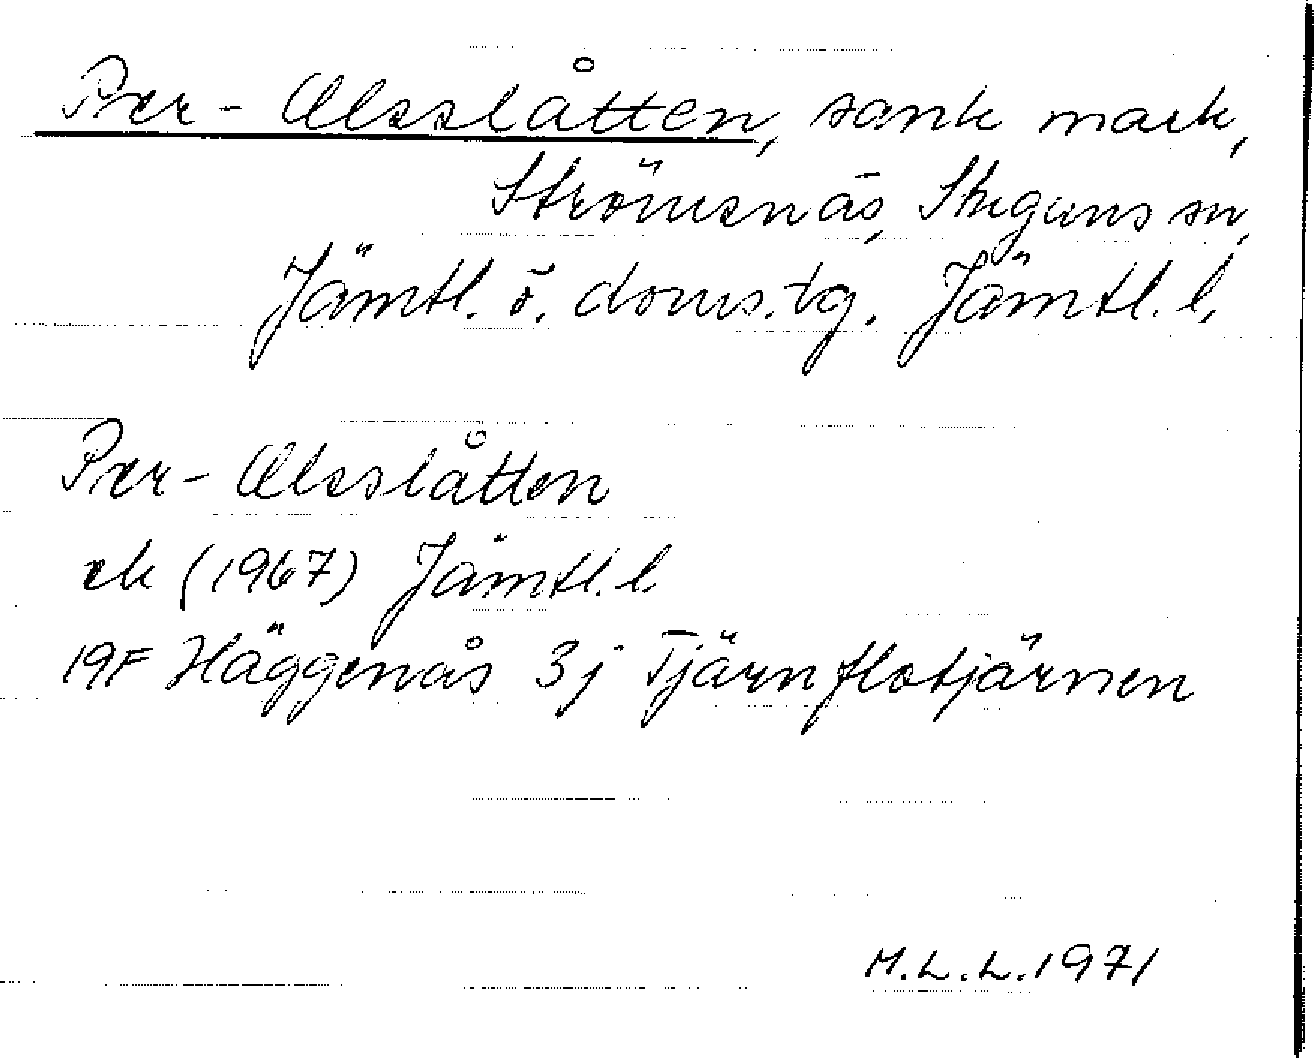 Per-Olsslåtten, sank mark,
Strömsnäs, Stuguns sn,
Jämtl. ö. doms.tg. Jämtl. l.
Per-Olsslåtten
ek (1967) Jämtl. l
19F Häggenås 3j Tjärnflotjärnen
M.L.L. 1971